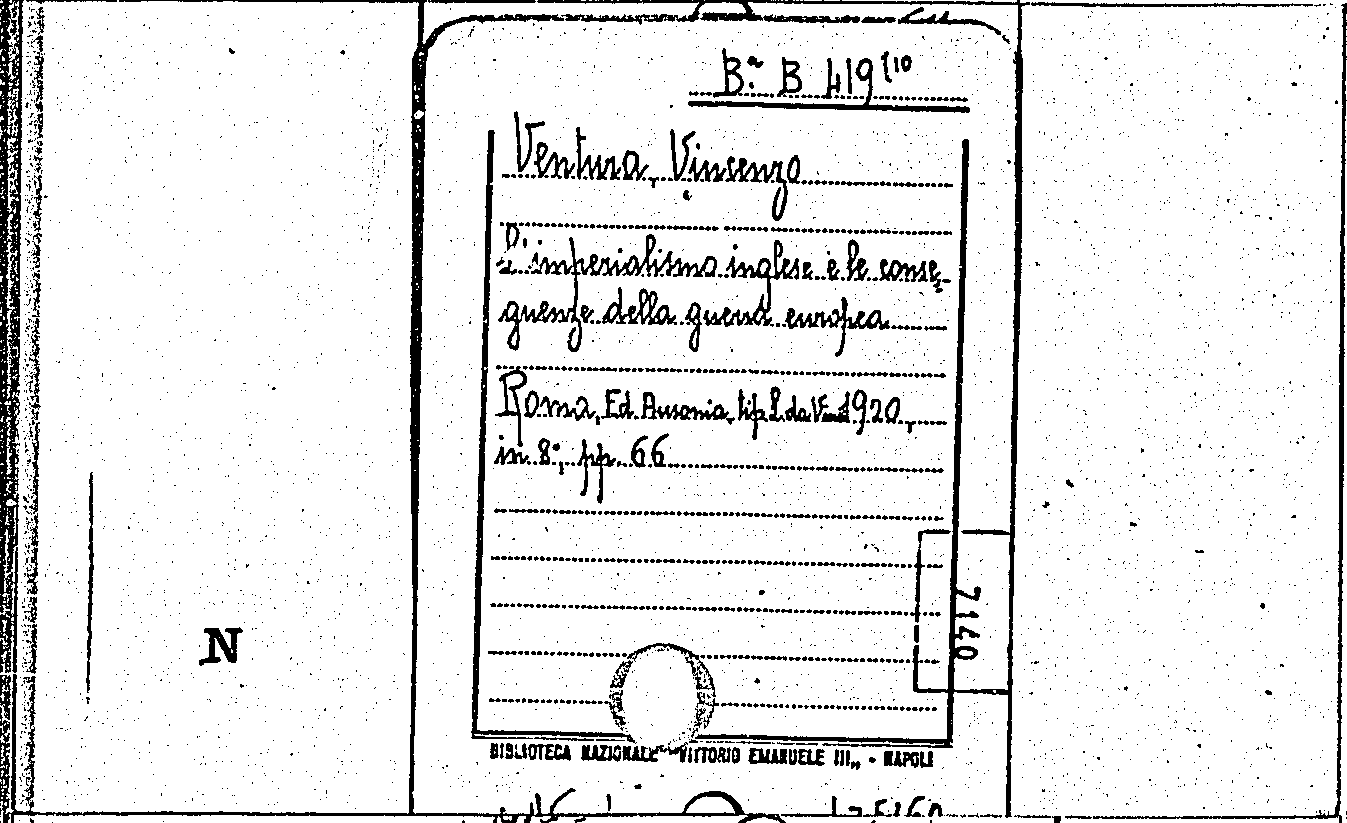 B.ª B 419 (10
Ventura, Vincenzo
L'imperialismo inglese e le conse-
guenze della guerra europea
Roma, Ed. Ausonia, tip. L. da Vinci 1920,
in 8°, pp. 66
7140
N
BIBLIOTECA NAZIONALE "VITTORIO EMANUELE III" - NAPOLI